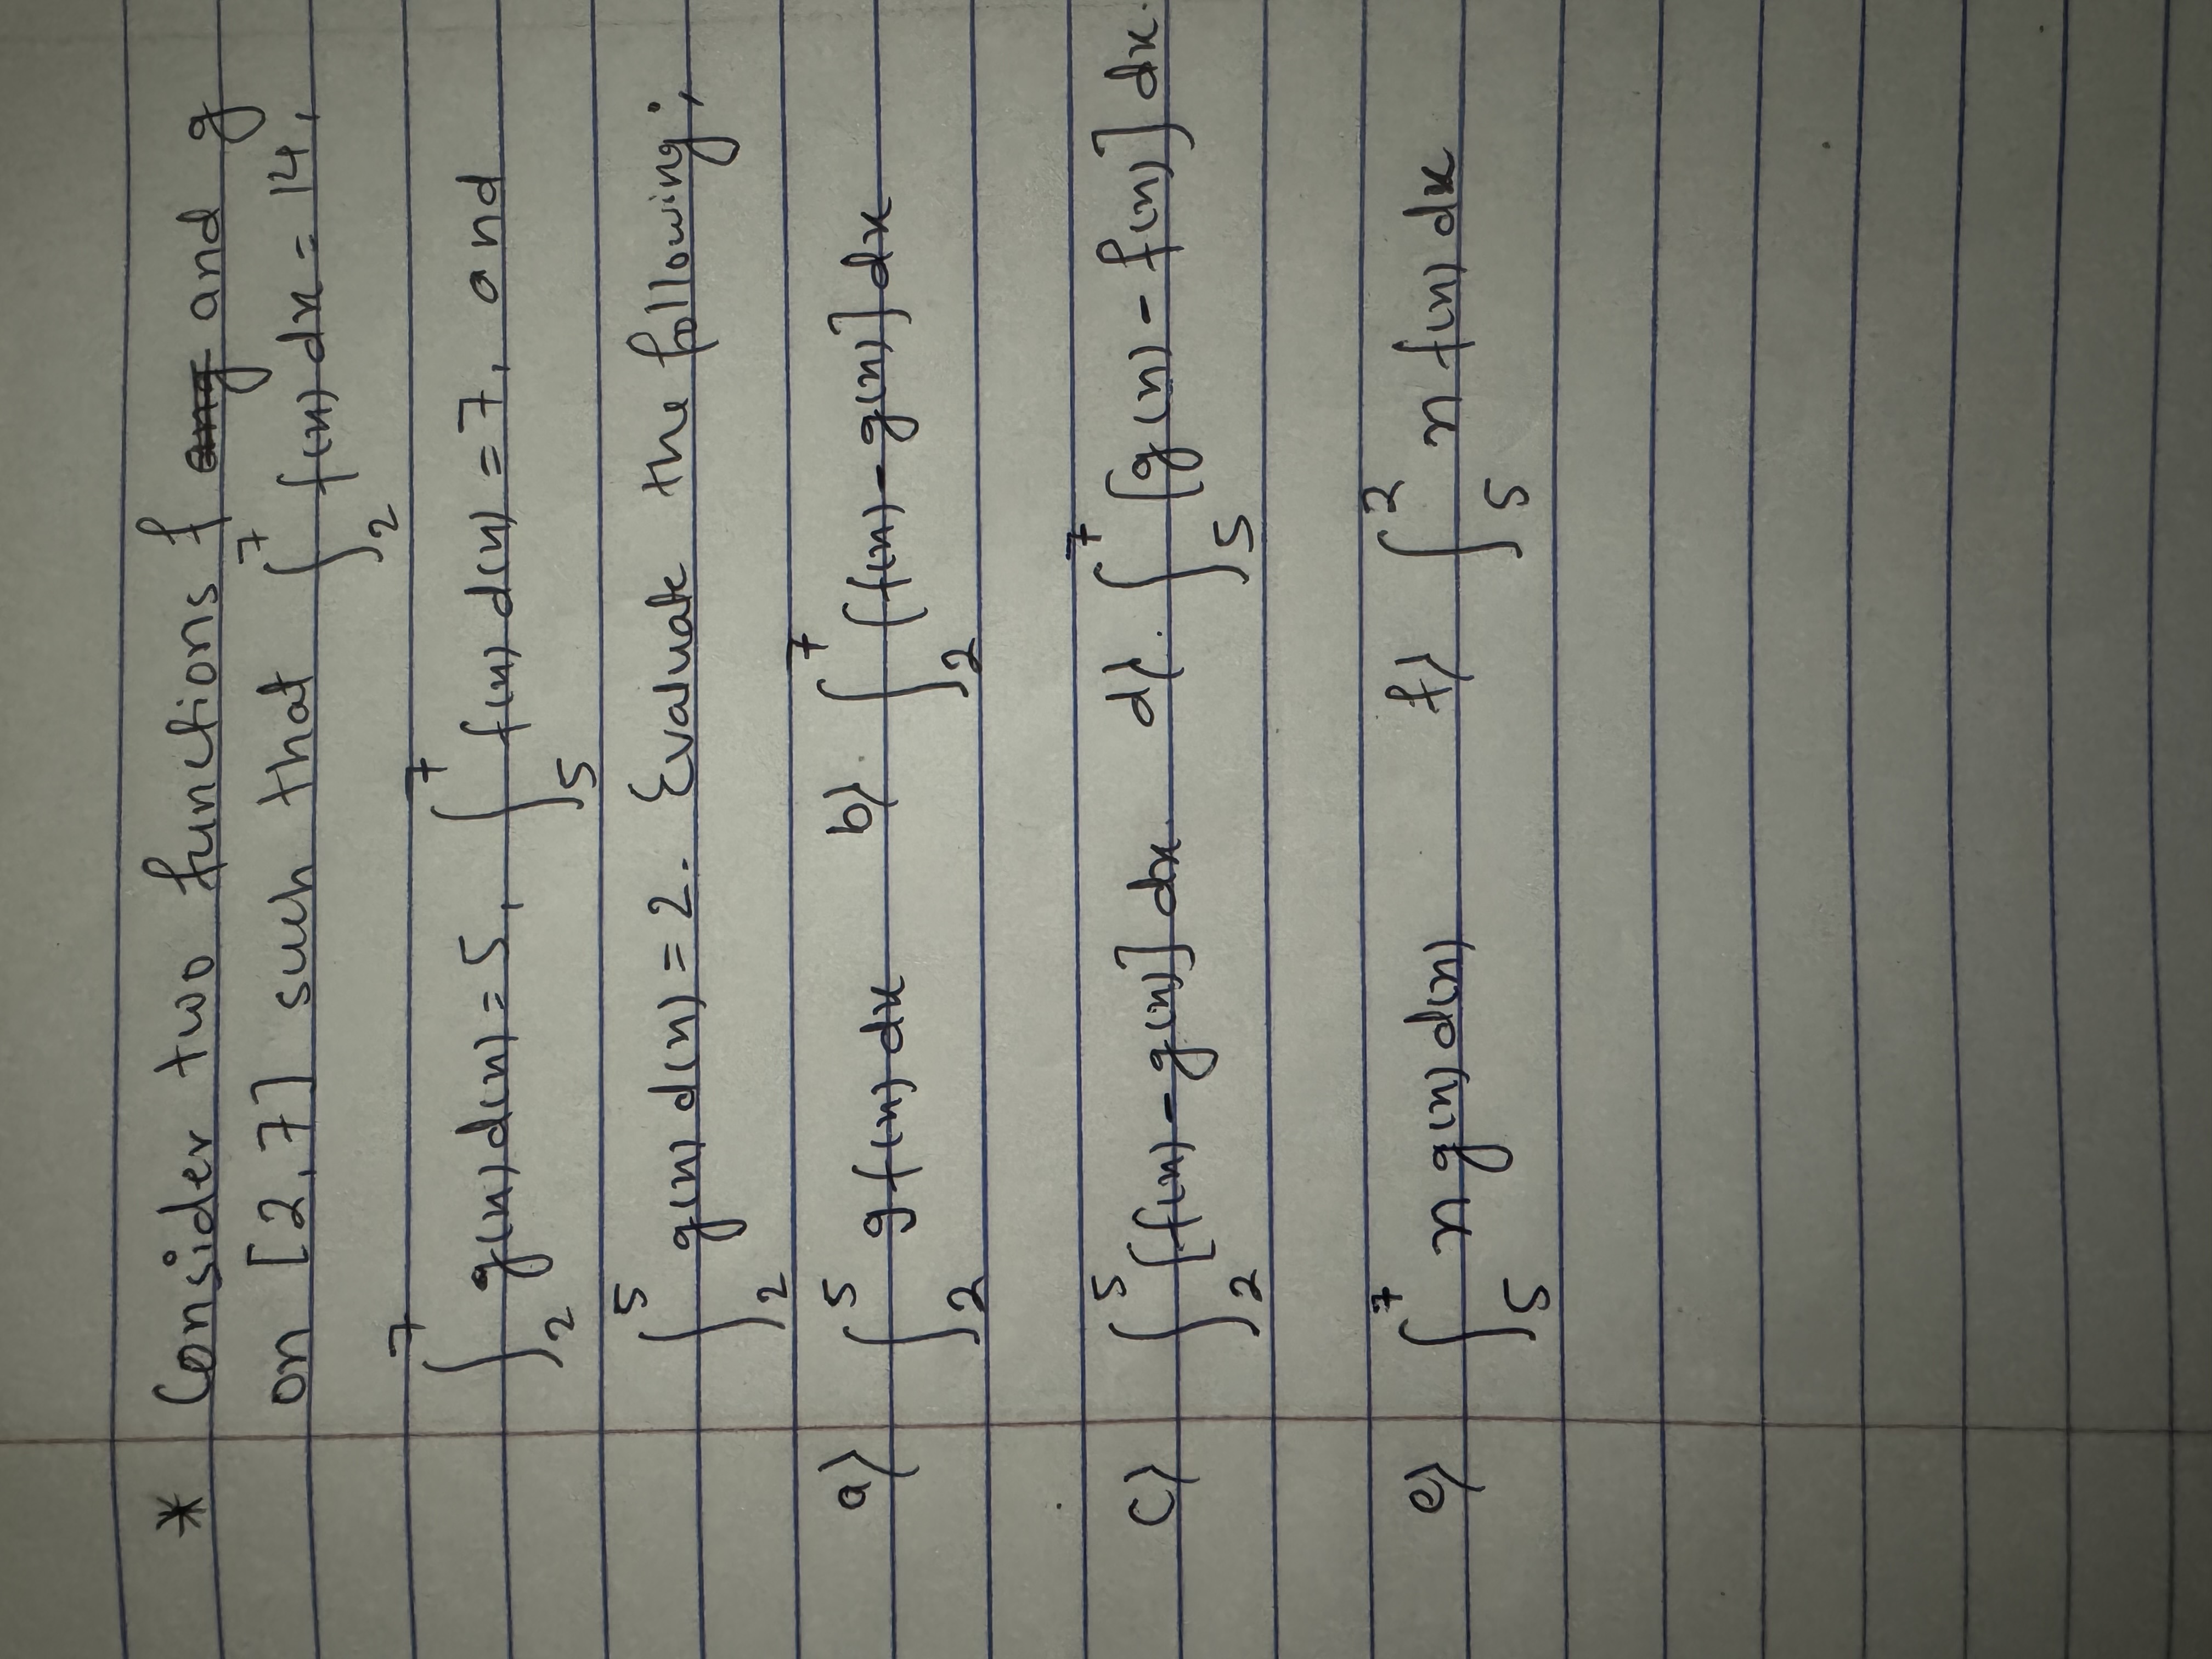 * Consider two functions f and g
on [2,7] such that ∫₂⁷ f(x) dx = 14,
∫₂⁷ g(x) d(x) = 5, ∫₅⁷ f(x) d(x) = 7, and
∫₂⁵ g(x) d(x) = 2. Evaluate the following;
a) ∫₂⁵ g f(x) dx b) ∫₂⁷ [f(x) - g(x)] dx
c) ∫₂⁵ [f(x) - g(x)] dx d) ∫₅⁷ [g(x) - f(x)] dx.
e) ∫₅⁷ x g(x) d(x) f) ∫₅² x f(x) dx